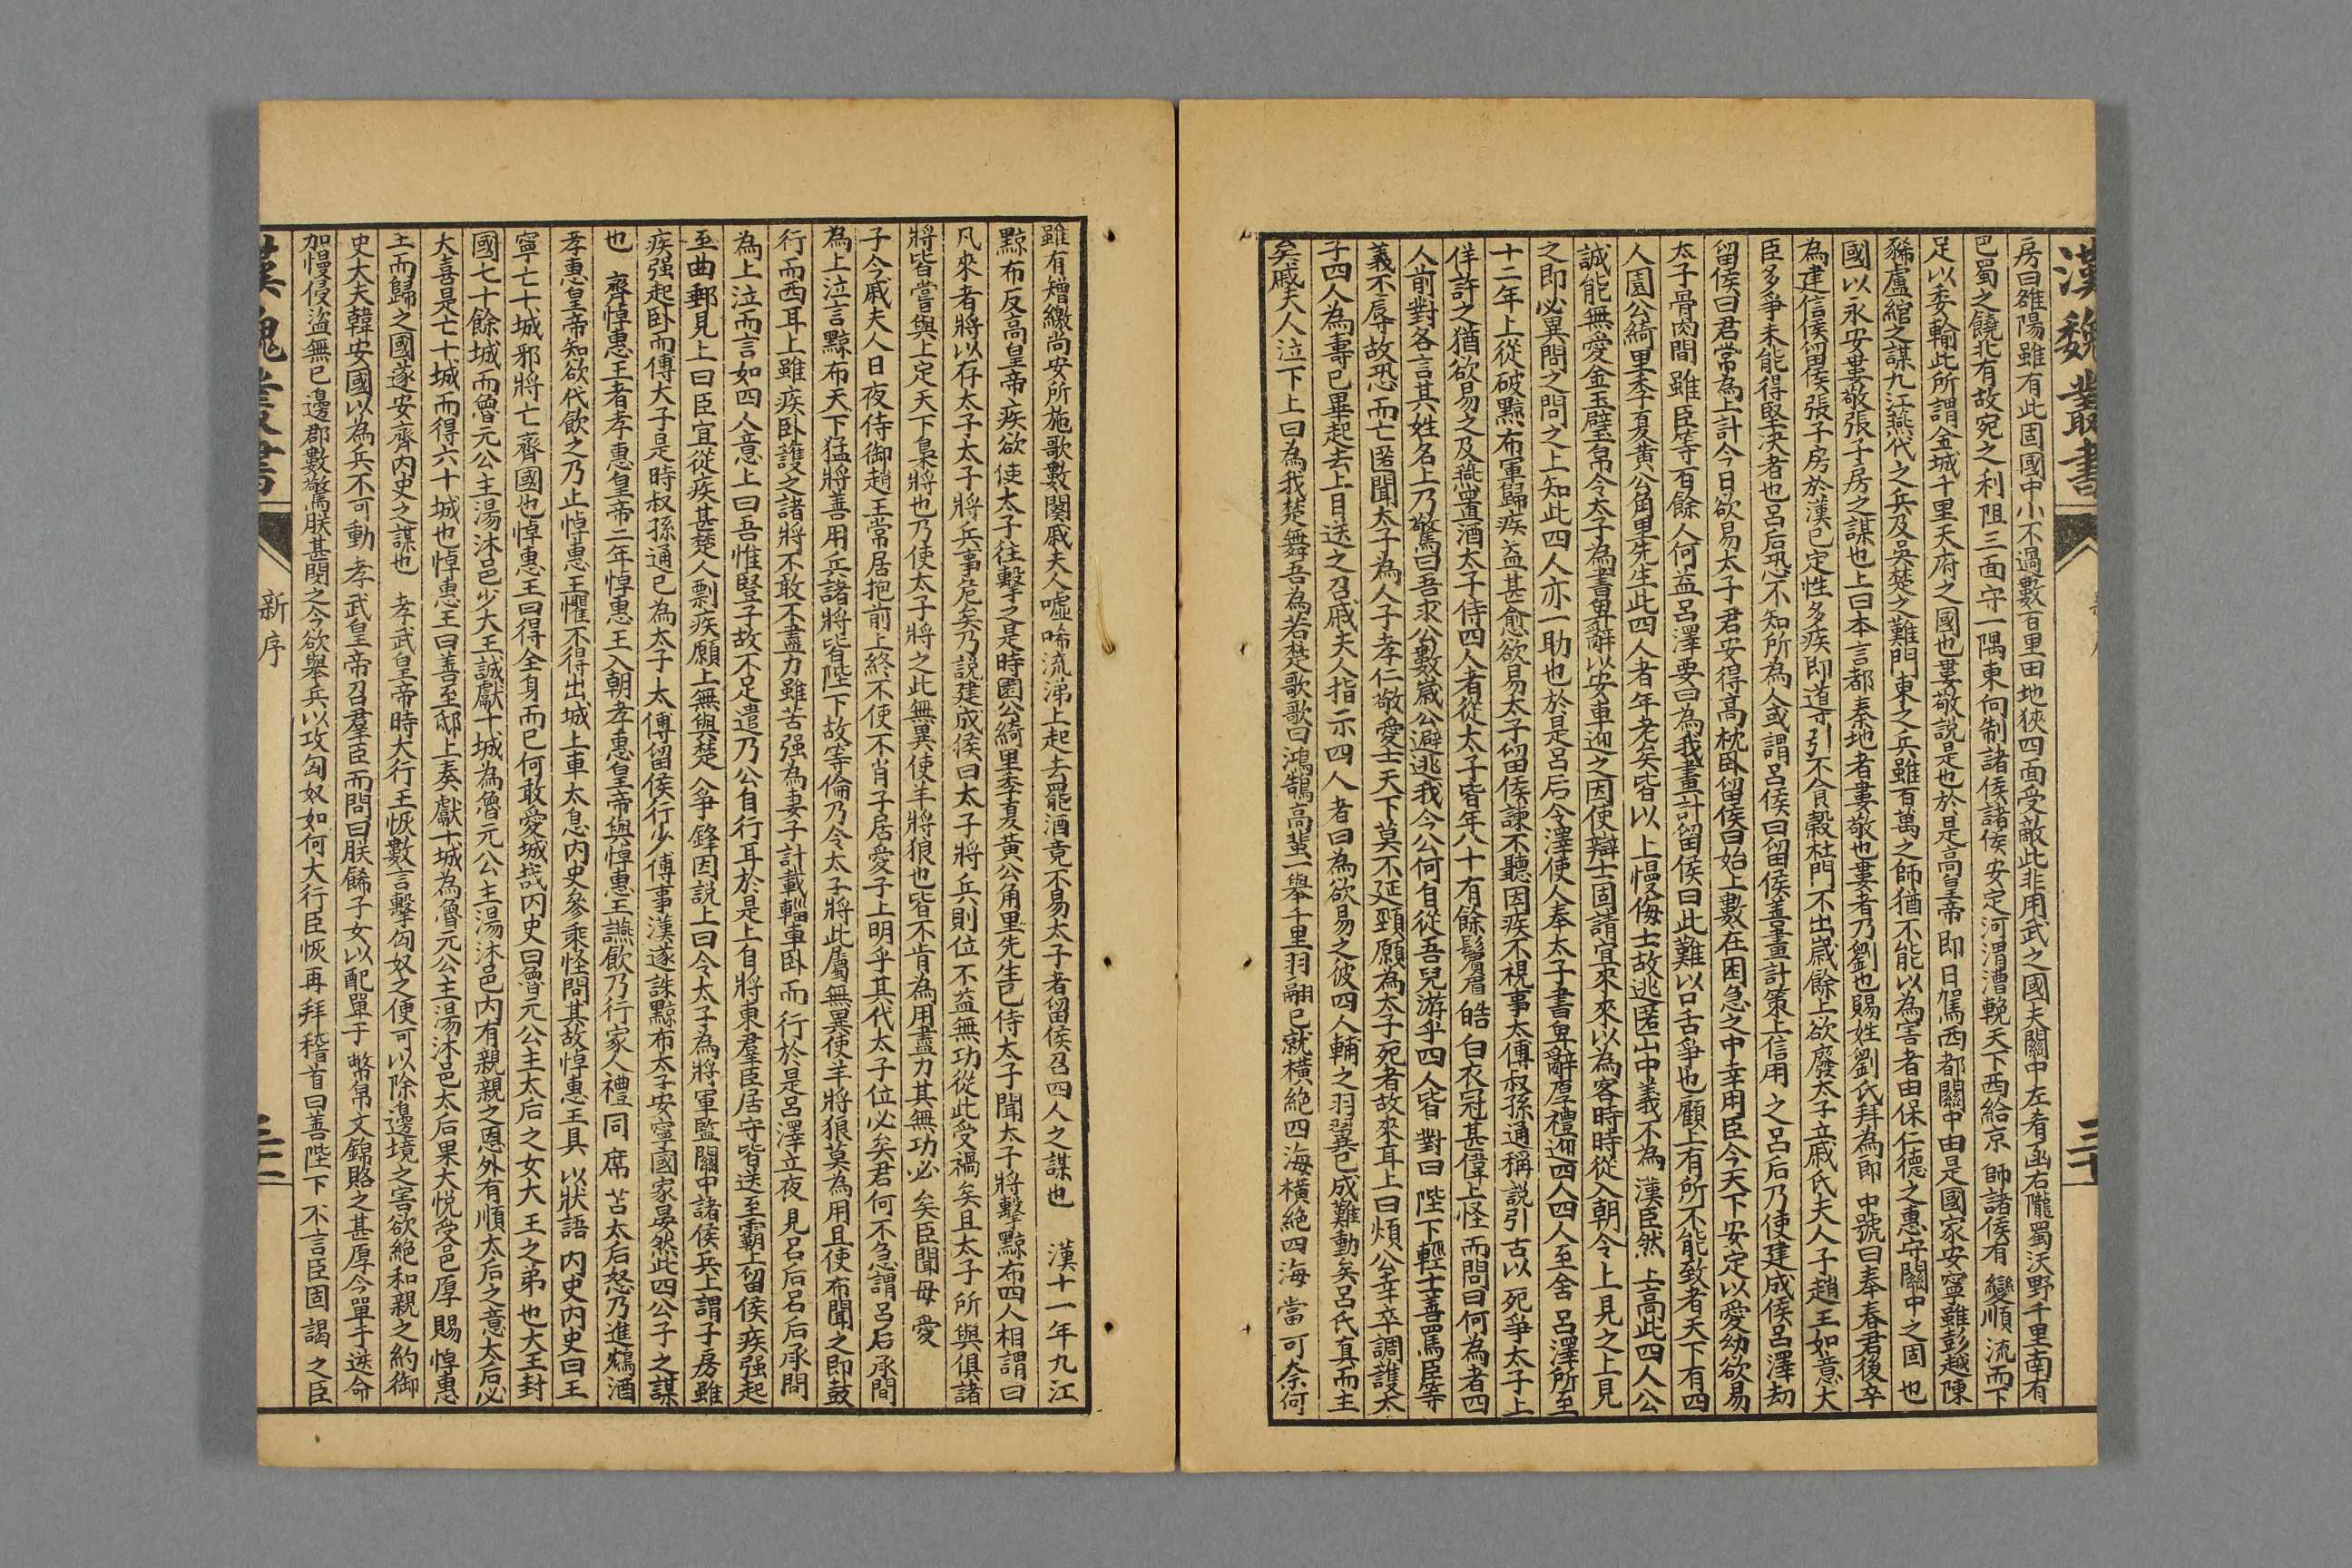 漢魏叢書
房曰雒陽雖有此固國中小不過數百里田地狹四面受敵此非用武之國夫關中左殽函右隴蜀沃野千里南有
巴蜀之饒北有故宛之利阻三面守一隅東向制諸侯諸侯安定河渭漕輓天下西給京師諸侯有變順流而下
足以委輸此所謂金城千里天府之國也婁敬說是也於是高皇帝即日駕西都關中由是國家安寧雖彭越陳
豨盧綰之謀九江燕代之兵及吳楚之難關東之兵雖百萬之師猶不能以為害者由保仁德之惠守關中之固也
國以永安婁敬張子房之謀也上曰本言都秦地者婁敬也婁者乃劉也賜姓劉氏拜為郎中號曰奉春君後卒
為建信侯留侯張子房於漢已定性多疾即導引不食穀杜門不出歲餘上欲廢太子立戚氏夫人子趙王如意大
臣多爭未能得堅決者也呂后恐不知所為人或謂呂侯曰留侯善畫計策上信用之呂后乃使建成侯呂澤劫
留侯曰君常為上計今日欲易太子君安得高枕臥留侯曰始上數在困急之中幸用臣今天下安定以愛幼欲易
太子骨肉間雖臣等有餘人何益呂澤要曰為我畫計留侯曰此難以口舌爭也顧上有所不能致者天下有四
人園公綺里季夏黃公角里先生此四人者年老矣皆以上慢侮士故逃匿山中義不為漢臣然上高此四人公
誠能無愛金玉璧帛令太子為書卑辭以安車迎之因使辯士固請宜來來以為客時時從入朝令上見之上見
之即必異問之問之上知此四人亦一助也於是呂后令澤使人奉太子書卑辭厚禮迎四人四人至舍呂澤所至
十二年上從破黥布軍歸疾益甚愈欲易太子留侯諫不聽因疾不視事太傅叔孫通稱說引古以死爭太子上
佯許之猶欲易之及燕置酒太子侍四人者從太子皆年八十有餘鬢眉皓白衣冠甚偉上怪而問曰何為者四
人前對各言其姓名上乃驚曰吾求公數歲公避逃我今公何自從吾兒游乎四人皆對曰陛下輕士善罵臣等
義不辱故恐而亡匿聞太子為人子孝仁敬愛士天下莫不延頸願為太子死者故來耳上曰煩公幸卒調護太
子四人為壽已畢起去上目送之召戚夫人指示四人者曰為欲易之彼四人輔之羽翼已成難動矣呂氏真而主
矣戚夫人泣下上曰為我楚舞吾為若楚歌歌曰鴻鵠高蜚一舉千里羽翮已就橫絕四海橫絕四海當可奈何
雖有矰繳尚安所施歌數闋戚夫人噓唏流涕上起去罷酒竟不易太子者留侯召四人之謀也　漢十一年九江
黥布反高皇帝疾欲使太子往擊之是時園公綺里季夏黃公角里先生已侍太子聞太子將擊黥布四人相謂曰
凡來者將以存太子太子將兵事危矣乃說建成侯曰太子將兵則位不益無功從此受禍矣且太子所與俱諸
將皆嘗與上定天下梟將也乃使太子將之此無異使羊將狼也皆不肯為用盡力其無功必矣臣聞母愛
子今戚夫人日夜侍御趙王常居抱前上終不使不肖子居愛子上明乎其代太子位必矣君何不急謂呂后承間
為上泣言黥布天下猛將善用兵諸將皆陛下故等倫乃令太子將此屬無異使羊將狼莫為用且使布聞之即鼓
行而西耳上雖疾臥護之諸將不敢不盡力雖苦强為妻子計載輜車臥而行於是呂澤立夜見呂后呂后承間
為上泣而言如四人意上曰吾惟豎子故不足遣乃公自行耳於是上自將東羣臣居守皆送至霸上留侯疾强起
至曲郵見上曰臣宜從疾甚楚人剽疾願上無與楚人爭鋒因說上曰令太子為將軍監關中諸侯兵上謂子房雖
疾强起臥而傅太子是時叔孫通已為太子太傅留侯行少傅事漢遂誅黥布太子安寧國家晏然此四公子之謀
也　齊悼惠王者孝惠皇帝二年悼惠王入朝孝惠皇帝與悼惠王讌飲乃行家人禮同席苦太后怒乃進鴆酒
孝惠皇帝知欲代飲之乃止悼惠王懼不得出城上車太息內史參乘怪問其故悼惠王具以狀語內史內史曰王
寧亡十城邪將亡齊國也悼惠王曰得全身而已何敢愛城哉內史曰魯元公主太后之女大王之弟也大王封
國七十餘城而魯元公主湯沐邑少大王誠獻十城為魯元公主湯沐邑內有親親之恩外有順太后之意太后必
大喜是亡十城而得六十城也悼惠王曰善至邸上奏獻十城為魯元公主湯沐邑太后果大悅受邑厚賜悼惠
王而歸之國遂安齊內史之謀也　孝武皇帝時大行王恢數言擊匈奴之便可以除邊境之害欲絕和親之約御
史大夫韓安國以為兵不可動孝武皇帝召羣臣而問曰朕餙子女以配單于幣帛文錦賂之甚厚今單于逆命
加慢侵盜無已邊郡數驚朕甚閔之今欲舉兵以攻匈奴如何大行臣恢再拜稽首曰善陛下不言臣固謁之臣
漢魏叢書
新序